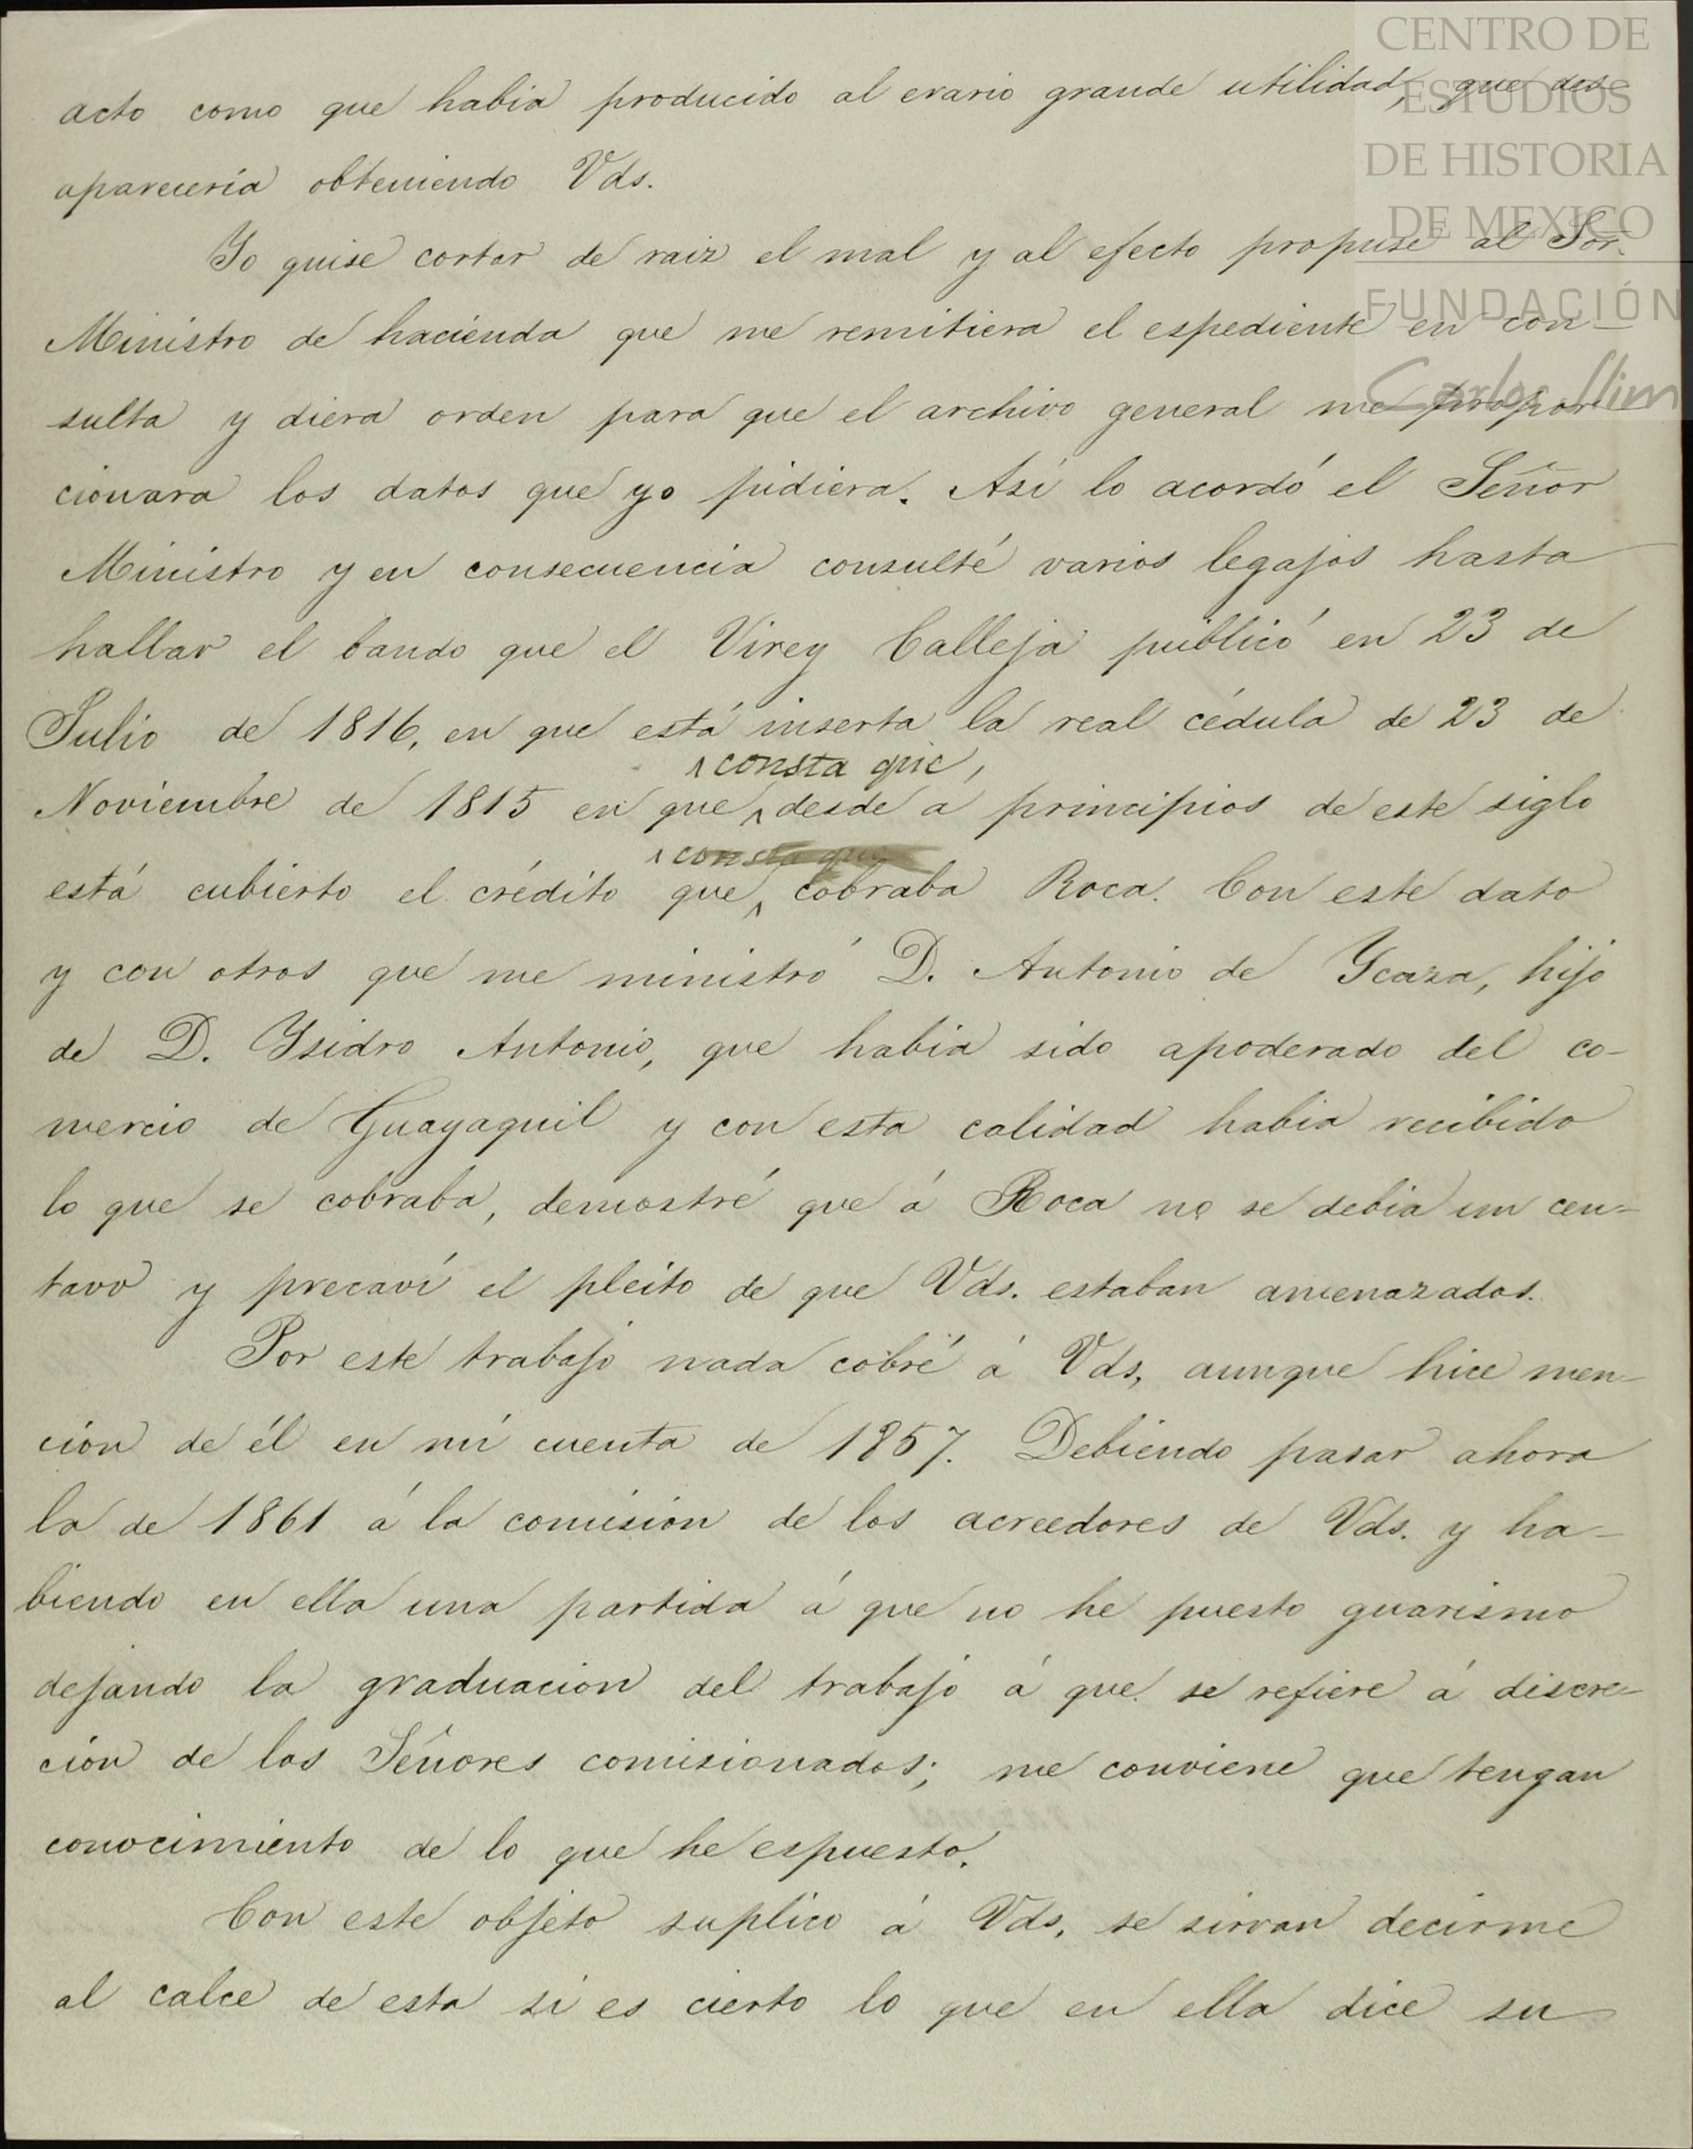 CENTRO DE
ESTUDIOS
DE HISTORIA
DE MEXICO
FUNDACIÓN
Carlos Slim
acto como que habia producido al erario grande utilidad, que des-
apareceria obteniendo Vds.
Yo quise cortar de raiz el mal y al efecto propuse al Sor.
Ministro de hacienda que me remitiera el espediente en con-
sulta y diera orden para que el archivo general me propor-
cionara los datos que yo pidiera. Así lo acordó el Señor
Ministro y en consecuencia consulté varios legajos hasta
hallar el bando que el Virey Calleja publicó en 23 de
Julio de 1816, en que está inserta la real cédula de 23 de
consta que,
Noviembre de 1815 en que desde a principios de este siglo
consta que
está cubierto el crédito que cobraba Roca. Con este dato
y con otros que me ministró D. Antonio de Ycaza, hijo
de D. Ysidro Antonio, que habia sido apoderado del co-
mercio de Guayaquil y con esta calidad habia recibido
lo que se cobraba, demostré que á Roca no se debia un cen-
tavo y precaví el pleito de que Vds. estaban amenazados.
Por este trabajo nada cobré á Vds, aunque hice men-
cion de él en mi cuenta de 1857. Debiendo pasar ahora
la de 1861 á la comision de los acreedores de Vds. y ha-
biendo en ella una partida á que no he puesto guarismo
dejando la graduacion del trabajo á que se refiere á discre-
cion de los Señores comisionados; me conviene que tengan
conocimiento de lo que he espuesto.
Con este objeto suplico á Vds. se sirvan decirme
al calce de esta si es cierto lo que en ella dice su